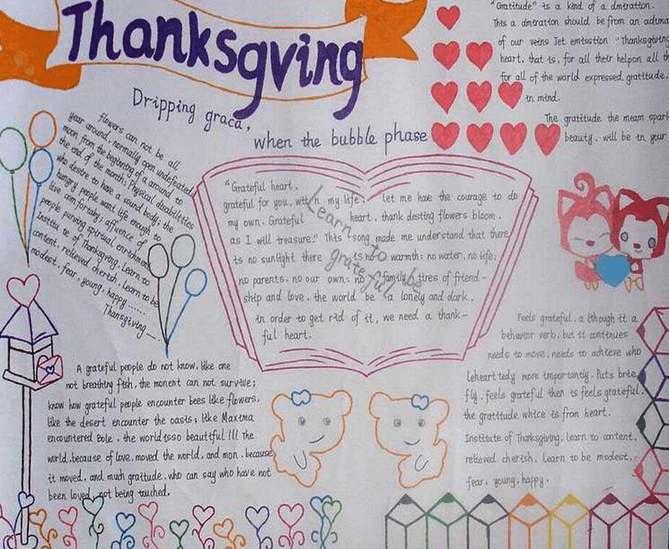 Thanksgving
Dripping graca,
when the bubble phase
"Gratitude" is a kind of a dmtration.
This a dmtration should be from an
of our veins Jet emtsstion "Thanksgiving
heart, that is, for all their helpon all
for all of the world expressed gratitude,
in mind.
The gratitude the meam spark
beauty. will be in your
flowers can not be all
year around, normally open undefeatedly
moon from the beginning of a around to
the end of the month; Physical disabilities
who desire to have a sound body; the
hungry people want life enough to
live on forsaby; affluence of
people purving spirtual enrichment
Institu te of Thanksgiving. Learn to
content, relieved cherish. Learn to be
modest, fear, young, happy......
Thanksgiving—.
Learn to be
grateful
"Grateful heart,
grateful for you, with my life; let me hae the courage to do
my own. Grateful heart, thank destiny flowers bloom,
as I will treasure." This song made me understand that there
is no sunlight there is no warmth; no water, no life;
no parents, no our own, no family, tires of friend-
ship and love, the world be a lonely and dark.
in order to get rid of it, we need a thank-
ful heart.
A grateful people do not know, like one
not breathing fish, the monent can not survive;
know how grateful people encounter bees like flowers,
like the desert encounter the oasis, like Maxtma
encountered Bole, the world isso beauttful !!! The
world, because of love, moved the world, and mon, because
it moved, and much grattude, who can say who have not
been loved, not being touched.
Feels grateful, a lthough it a
behavior verb, but it continues
needs to move, needs to achieve who
leheart tedly more importantly. Puts brie
fly, feels grateful then is feels grateful,
the gratitude whice is fron heart.
Institute of Thanksgiving, learn to content,
relieved cherish. Learn to be modest,
fear, young, happy.